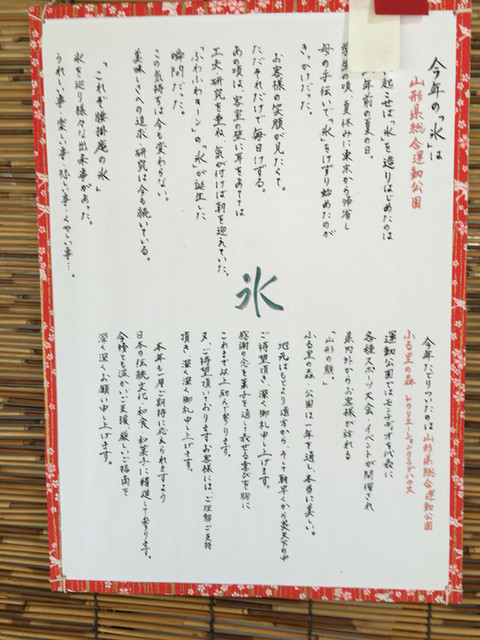 今年の「氷」は
山形県総合運動公園
起こせば「氷」を造りはじめたのは
年前の夏の日。
学生の頃、夏休みに東京から帰省し
母の手伝いで「氷」をけずり始めたのが
きっかけだった。
お客様の笑顔が見たくて。
ただそれだけで毎日けずる。
あの頃は、客室の壁に耳をあてては
工夫 研究を重ね 気が付けば朝を迎えていた。
「ふわふわキーン」の「氷」が誕生した
瞬間だった。
この気持ちは今も変わらない。
美味しさへの追求、研究は今も続いている。
「これぞ腰掛庵の氷」
氷を巡り様々な出来事があった。
うれしい事・楽しい事・悲しい事・くやしい事…。
氷
今年たどりついたのは 山形県総合運動公園
ふる里の森 レクリエーションクラブハウス
運動公園ではモンテディオを代表に
各種スポーツ大会・イベントが開催され
県内外からお客様が訪れる
「山形の顔」
ふる里の森 公園は一年を通し、本当に美しい。
地元はもとより遠方から、そして朝早くから炎天下の中
ご待望頂き、深く御礼申し上げます。
感謝の念を菓子を通して表せる喜びを胸に
これまで以上励んで参ります。
又、ご待望頂いておりますお客様には、ご理解ご支持
頂き、深く深く御礼申し上げます。
本年も一層ご期待に応えられますよう
日本の伝統文化・和食、和菓子に精進して参ります。
今後とも温かいご支援、厳しいご指南を
深く深くお願い申し上げます。